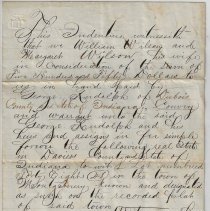 This Indenture witnesseth
that we William Wilson and
Margaret Wilson his wife
in consideration of the Sum of
Six Hundred Fifty Dollars to
us in hand Paid by
George Randolph of Dubois
County State of Indiana Convey
and warrant unto the said
George Randolph and his
heirs and assigns in fee simple
forever the following real Estate
in Daviess County State of
Indiana
Lot Eight (8) in the town of
Montgomery known and designated
as such on the recorded plat
of said town